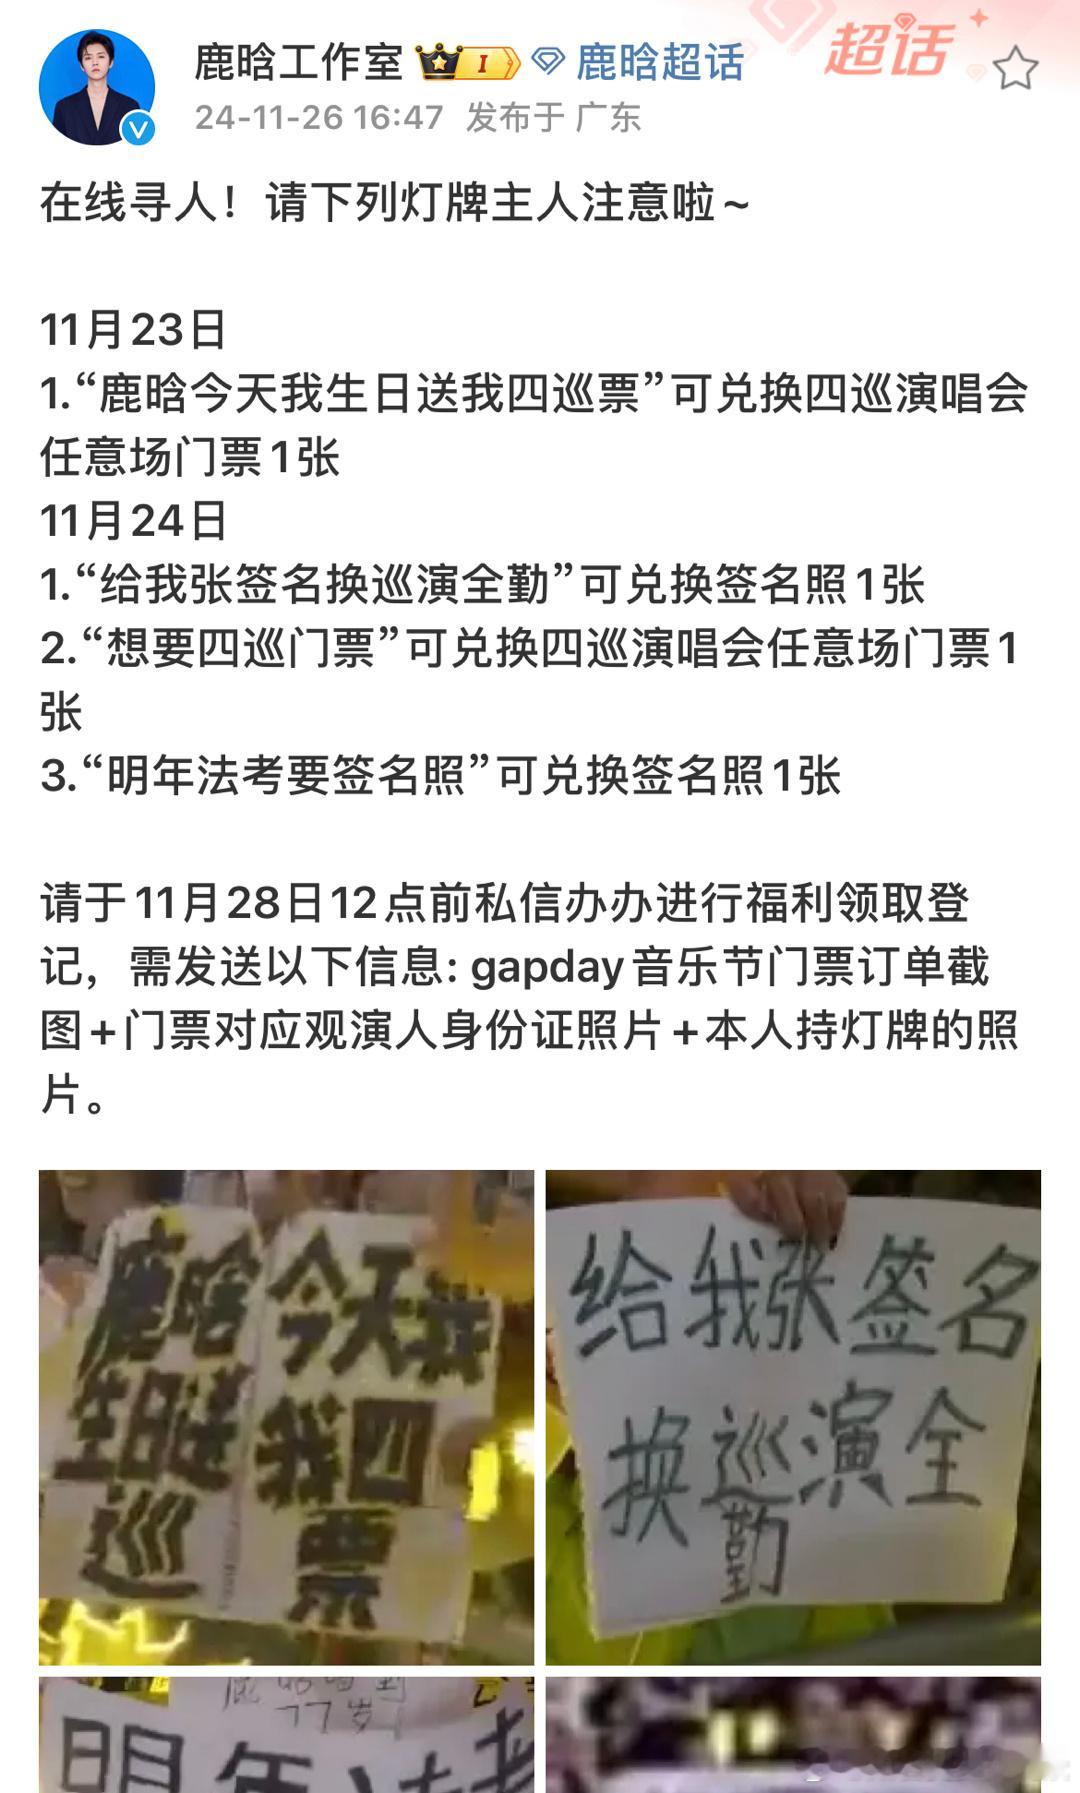 鹿晗工作室 I 鹿晗超话
超话
24-11-26 16:47 发布于 广东
在线寻人！请下列灯牌主人注意啦~
11月23日
1.“鹿晗今天我生日送我四巡票”可兑换四巡演唱会
任意场门票1张
11月24日
1.“给我张签名换巡演全勤”可兑换签名照1张
2.“想要四巡门票”可兑换四巡演唱会任意场门票1
张
3.“明年法考要签名照”可兑换签名照1张
请于11月28日12点前私信办办进行福利领取登
记，需发送以下信息: gapday音乐节门票订单截
图+门票对应观演人身份证照片+本人持灯牌的照
片。
鹿晗今天我
生日送我四
巡票
给我张签名
换巡演全
勤
鹿晗唱到
77岁
明年法考